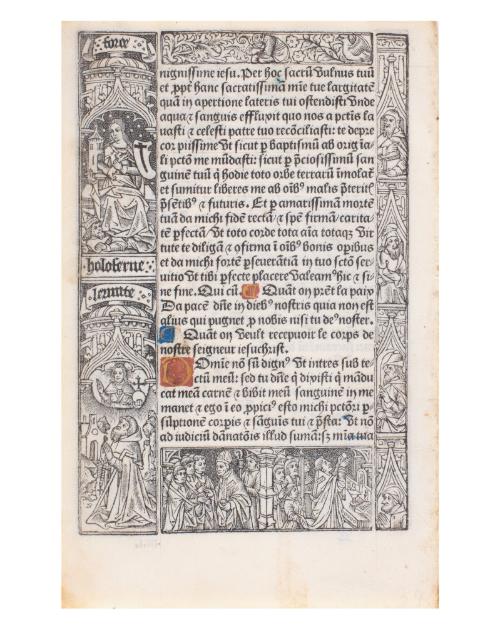 force
holoferne
iermite
nignissime iesu. Per hoc sacrū vulnus tuū
et ꝓpt hanc sacratissimā mīe tue largitatē
quā in apertione lateris tui ostendisti vnde
aqua ⁊ sanguis effluxit quo nos a pctīs la
uasti ⁊ celesti patre tuo recōciliasti: te depre
cor piissime vt sicut ꝑ baptismū ab orig īa
li pctō me mūdasti: sicut ꝑ ꝓciosissimū san
guinē tuū ꝗ hodie toto orbe terrarū īmolat
et sumitur liberes me ab oīb⁹ malis ꝓterit
ꝓsētib⁹ ⁊ futuris. Et ꝑ amarissimā mortē
tuā da michi fidē rectā ⁊ spē firmā carita
tē ꝑfectā vt toto corde tota aīa totaqꝫ vir
tute te diligā ⁊ ꝯfirma ī oīb⁹ bonis oꝑibus
et da michi forte ꝑseuerātiā in tuo sctō ser
uitio vt tibi ꝑfecte placere valeam⁹ hic ⁊ si
ne fine. Qui cū. Quāt on prēt la paix
Da pacē dn̄e in dieb⁹ nostris quia non est
alius qui pugnet ꝓ nobis nisi tu de⁹ noster.
Quāt on veult recepuoir le corps de
nostre seigneur iesuchrist.
Domīe nō sū dign⁹ vt intres sub te
ctū meū: sed tu dn̄e ꝗ dixisti ꝗ mādu
cat meā carnē ⁊ bibit meū sanguinē in me
manet ⁊ ego ī eo ꝓpici⁹ esto michi pctōri ꝑ
sūptionē corpis ⁊ sāguis tui ⁊ ꝓsta: vt nō
ad iudiciū dānatōis illud sumā: sꝫ mīa tua